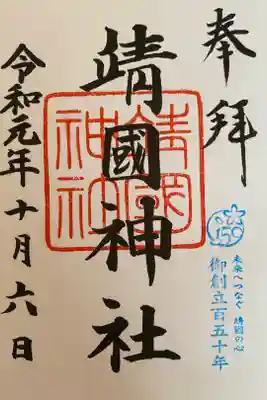 奉拝
靖國神社
靖國
神社
150
未来へつなぐ 靖國の心
御創立百五十年
令和元年十月六日